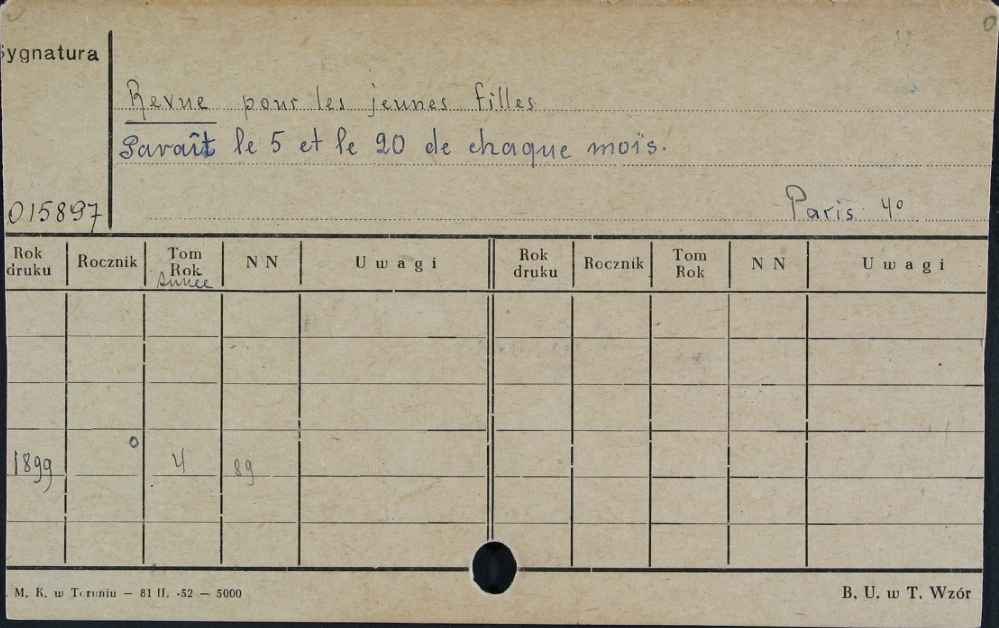 Sygnatura
Revue pour les jeunes filles
Paraît le 5 et le 20 de chaque moïs.
015897
Paris 4°
Rok druku Rocznik Tom Rok Année NN Uwagi Rok druku Rocznik Tom Rok NN Uwagi
1899 0 4 89
M. K. w Toruniu — 81 II. -52 — 5000
B. U. w T. Wzór